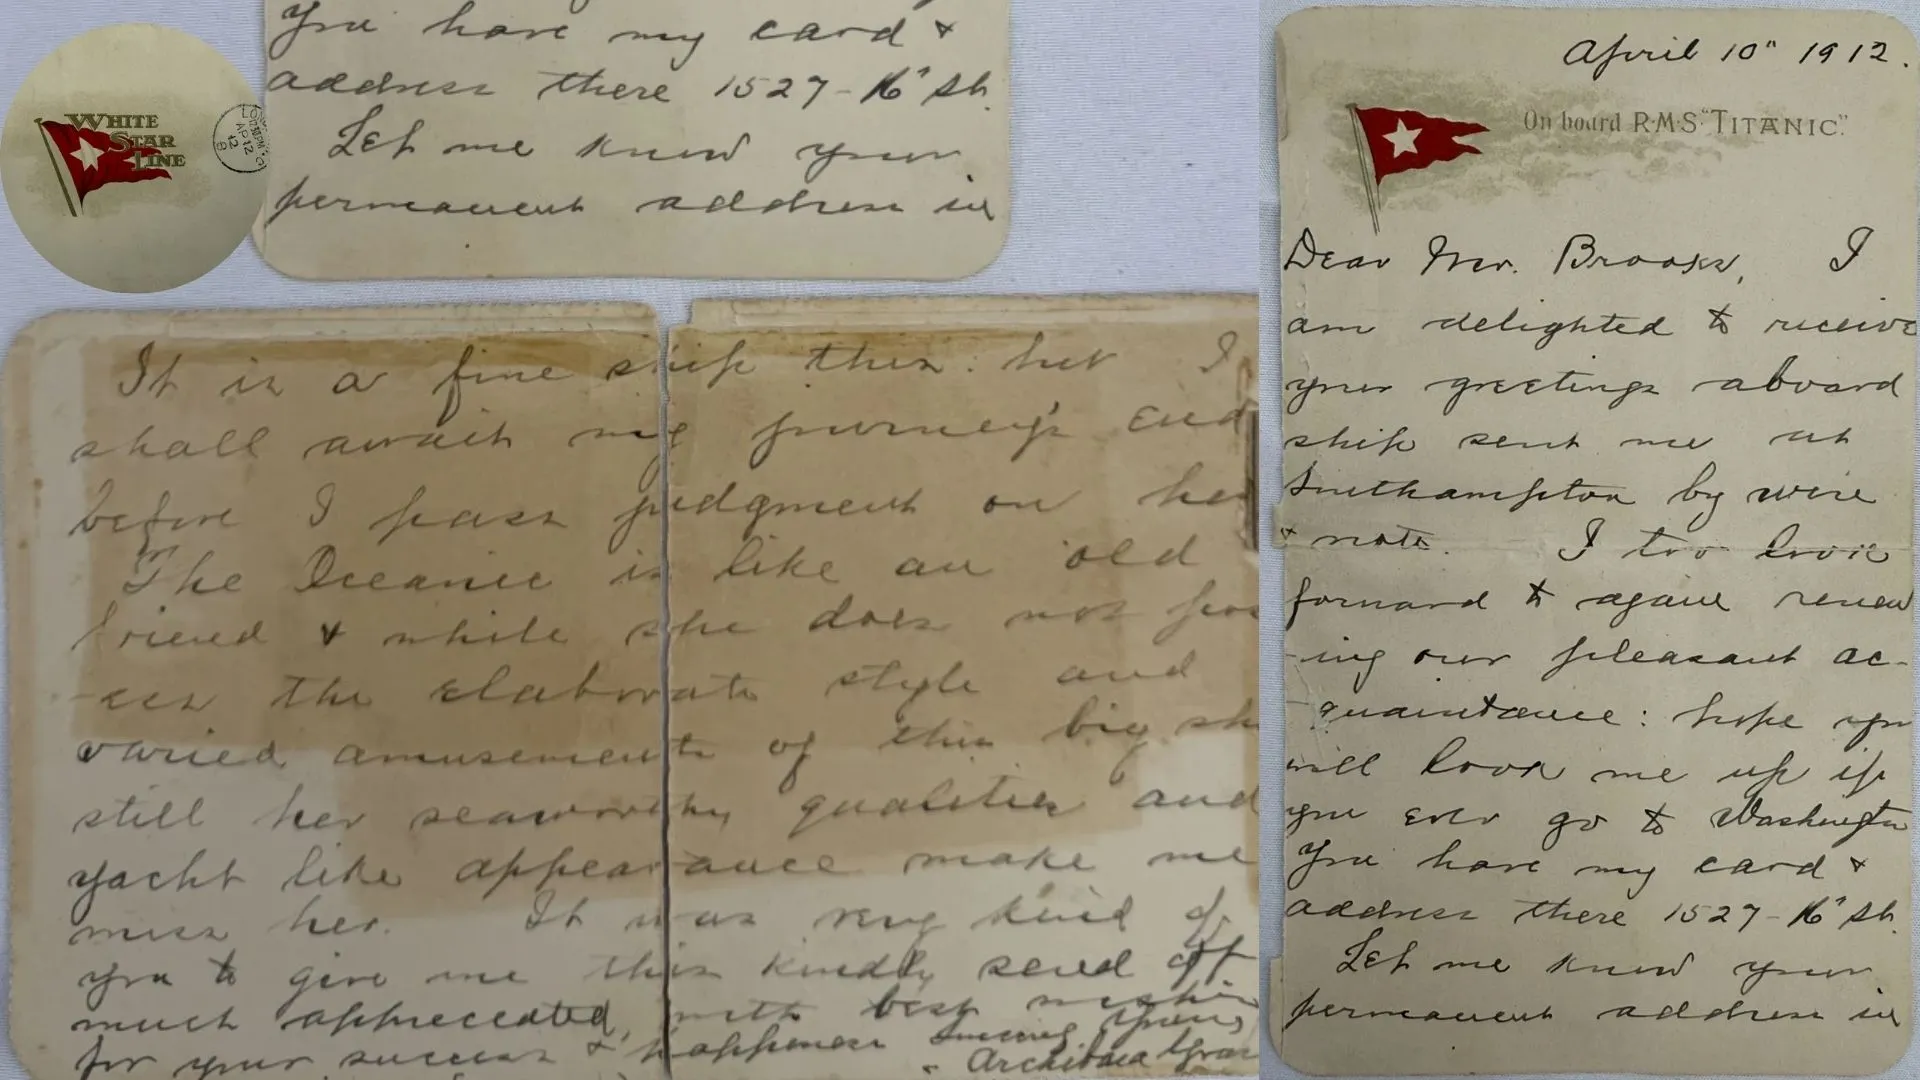 WHITE
STAR
LINE
AP 12
12
You have my card &
address there 1527-16" St.
Let me know your
permanent address in
It is a fine ship this: but I
shall await my journey's end
before I pass judgment on her
The Oceanic is like an old
friend & while she does not pos
-ses the elaborate style and
varied amusements of this big sh
still her seaworthy qualities and
yacht like appearance make me
miss her. It was very kind of
you to give me this kindly send off
much appreciated, with best wishes
for your success & happiness Sincerely yours
Archibald Grac
April 10" 1912.
On board R·M·S·"TITANIC".
Dear Mr. Brooks, I
am delighted to receive
your greetings aboard
ship sent me at
Southampton by wire
& note. I too look
forward to again renew
-ing our pleasant ac-
quaintance: hope you
will look me up if
you ever go to Washington
You have my card &
address there 1527-16" St.
Let me know your
permanent address in